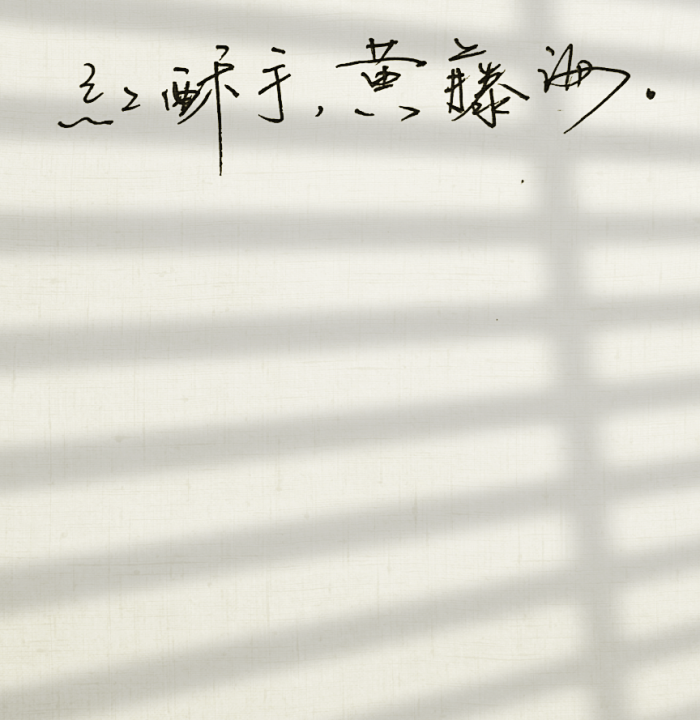 红酥手,黄藤酒.